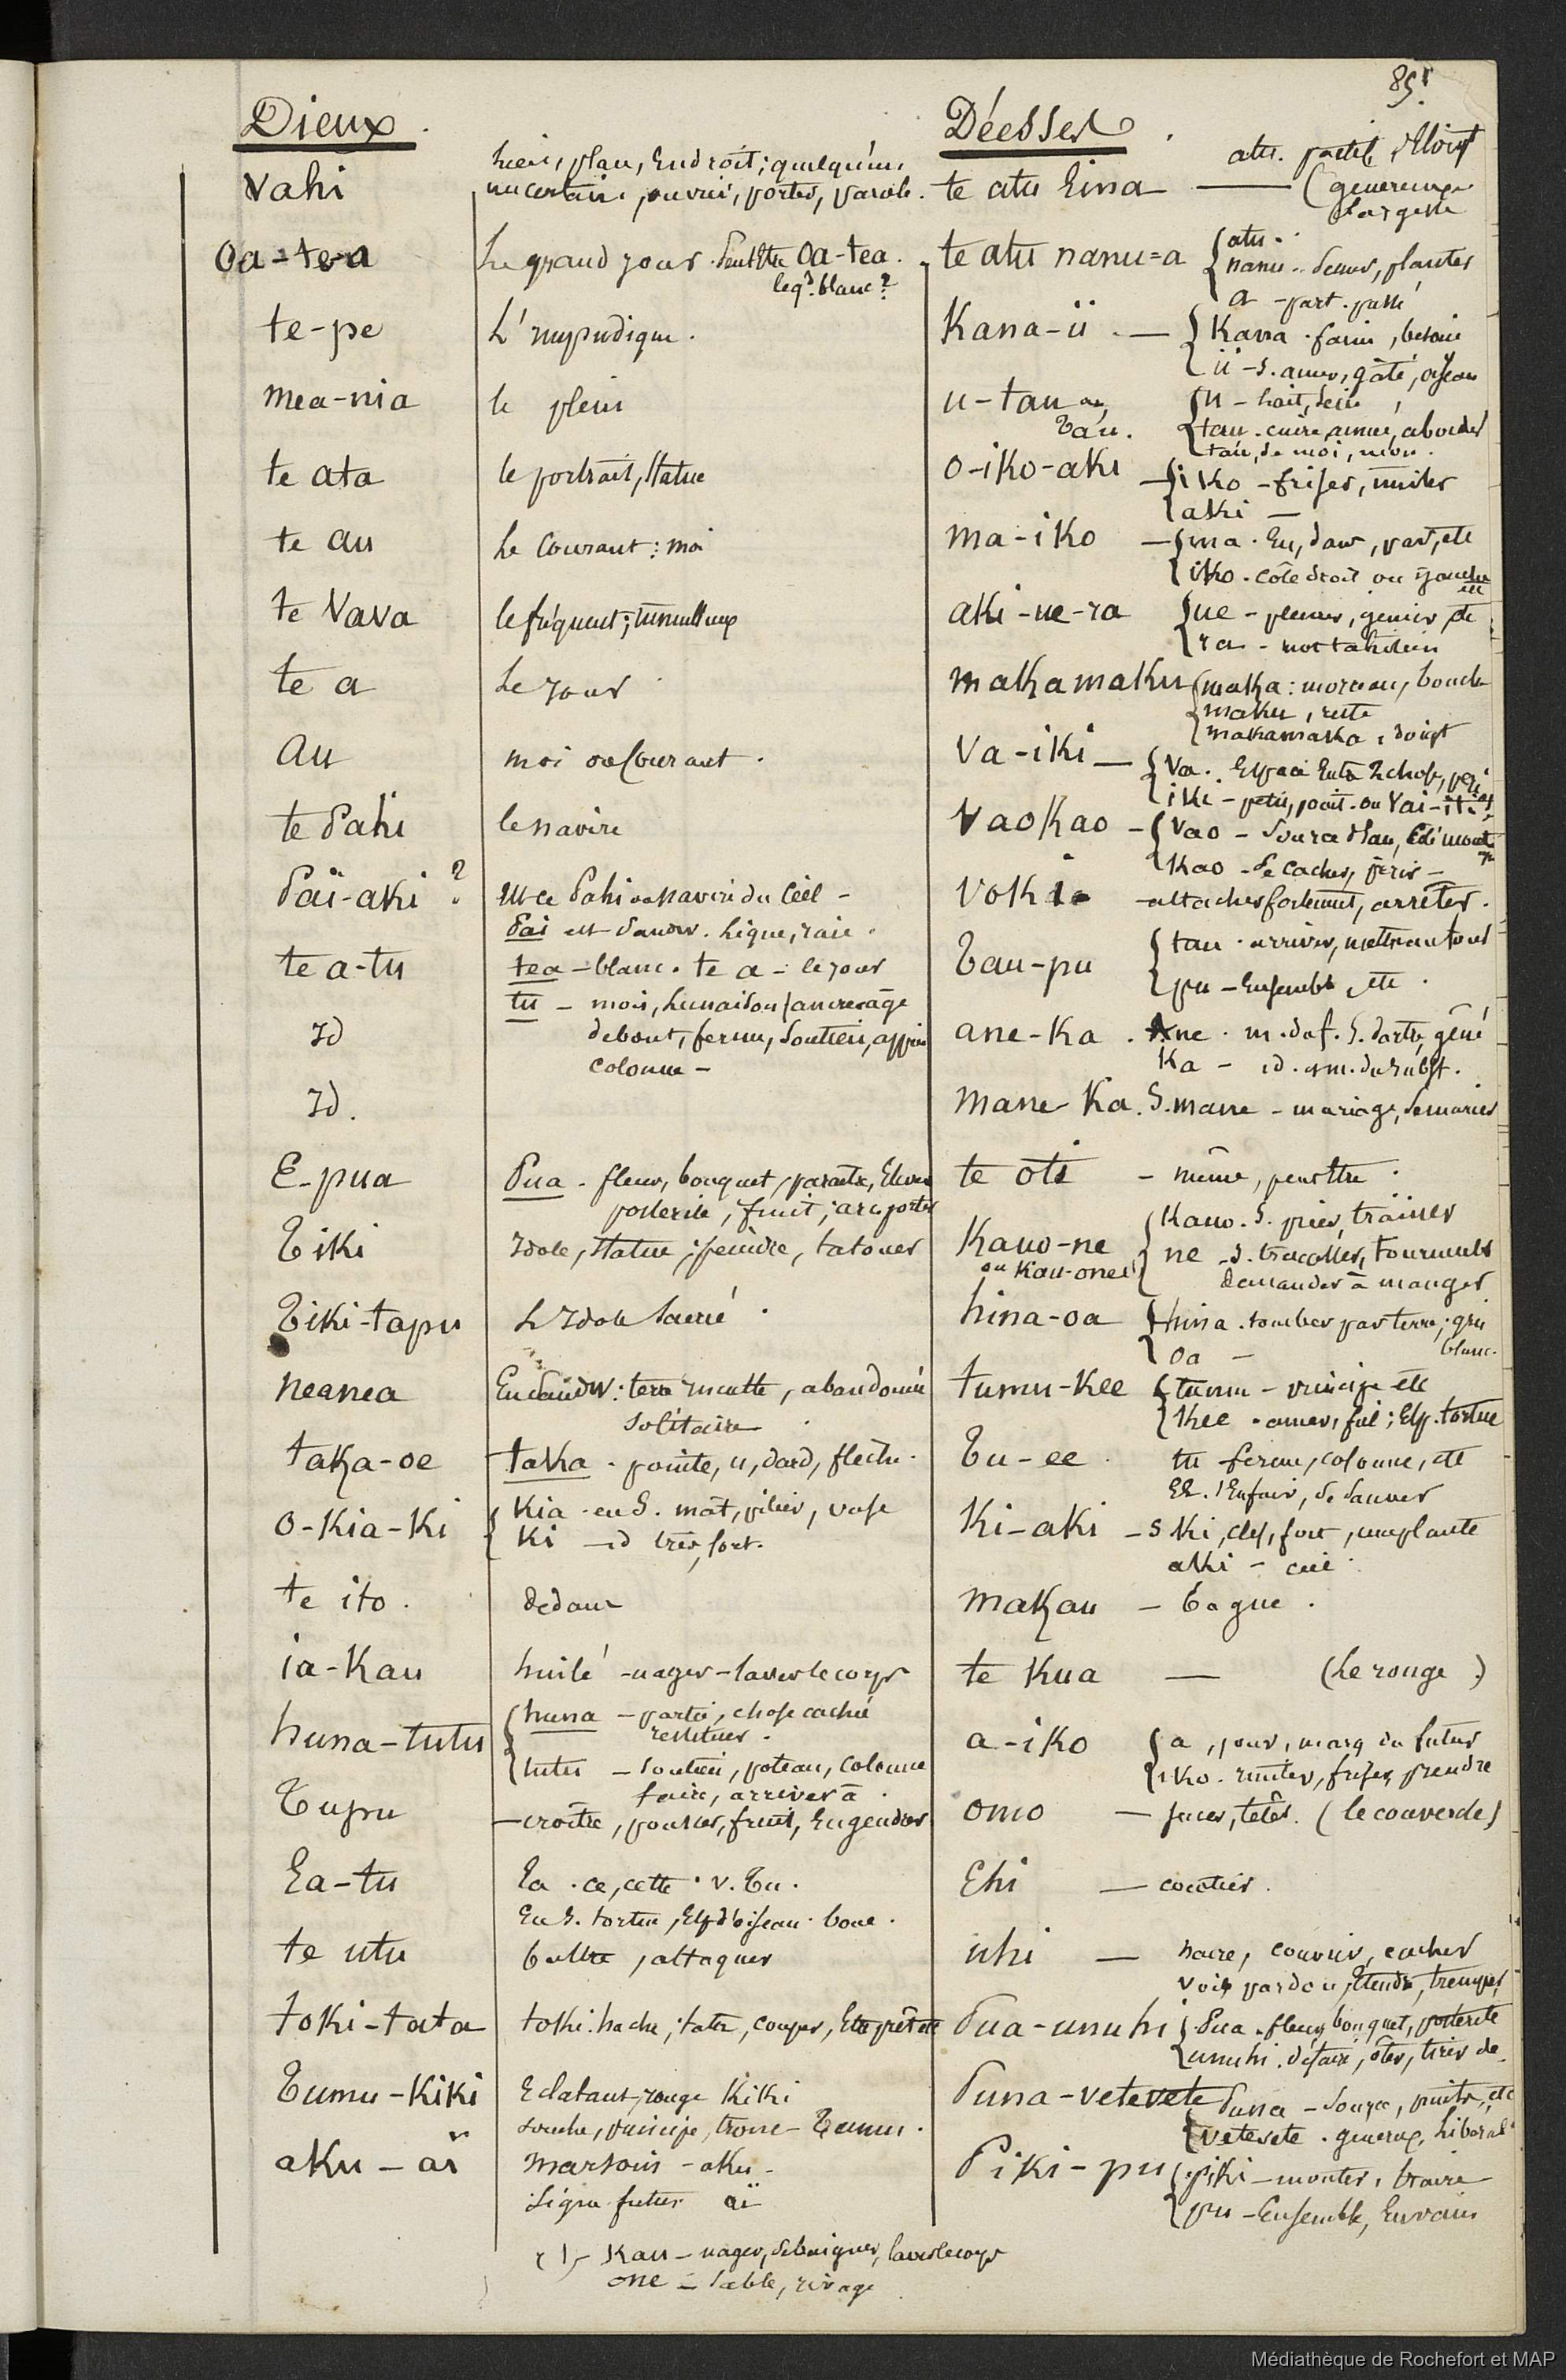 85
Dieux.
Déesses.
Vahi
lieu, plan, Endroit; quelqu'un,
un certain, ouvrir, porter, parole.
te atu Eina — atu. partie,
genereux
largesse
Oa-tea
Le grand jour. Peut être Oa-tea.
le gd. blanc?
te atu nanu=a
atu.
nanu.. semer, plantes
a - part. passé
te-pe
L'impudique.
Kana-ii. —
Kana. , besoin
ii - S. amer, gâté, oiseau
mea-nia
le plein
u-tau ou
Táu.
u - lait, sein
tau. cuire, année, aborder
táu, de moi, mon.
te ata
le portrait, statue
o-iko-aki
iko - friser, imiter
aki —
te au
Le Courant: moi
ma-iko
ma. En, dans, par, etc
iko. côté droit ou gauche
te Vava
le fréquent; tumultueux
aki-ue-ra
ue - pleurer, gémir, etc
ra - not tahitien
te a
Le jour
makamaku
maka: morceau, boucle
maku, reste
makamaka, doigt
au
moi ou Courant.
Va-iki —
Va. Espace Entre 2 choses,
iki - petit, point. ou Vai-iti
te Pahi
le navire
Vaokao -
Vao - Source d'eau,
Kao - Se cacher, périr -
Païaki?
Est-ce Pahi ou navire du Ciel -
Pai est Sandw. Ligne, raie.
Vokia
-attacher fortement, arrêter.
te a-tu
tea - blanc. te a - le jour
tu - mois, Lunaison, ancre
debout, ferme, Soutien, appui
colonne -
Tau-pu
tau. arriver, mettre autour
pu - Ensemble, etc.
Id
ane-ka.
Ane. m. daf. S. dartre, gêné
Ka - id.
Id.
Mane-Ka. S. mane - mariage, se marier
E-pua
Pua. fleur, bouquet, paraître, Elever
posterité, fruit,
te oti - même, peut être.
Tiki
Idole, Statue; peindre, tatouer
Kauo-ne
ou Kau-one(1)
Kauo. S. prier, traîner
ne - S. tracasser, tourmenter
demander à manger
Tiki-tapu
L'Idole Sacré.
hina-oa
hina. tomber par terre; gris
blanc.
oa —
neanea
En Sandw: terre inculte, abandonnée
Solitaire
tumu-Kee
tumu - principe etc
Kee. amer, fiel; Esp. tortue
taka-oe
taka. pointe, u, dard, flèche.
Tu-ee.
tu - ferme, colonne, etc
EE. s'Enfuir, Se Sauver
o-Kia-Ki
Kia. en S. mât, pilier, vase
Ki - id très, fort.
Ki-aki - S Ki, clef, fort, une plante
aki - ciel.
te ito.
dedans
makau - bague.
ia-Kau
huilé - nager - laver le corps
te Kua — (Le rouge)
huna-tutu
huna - partie, chose cachée
restituer.
tutu - soutien, poteau, colonne
faire, arriver à.
a-iko
a, jour, marq du futur
iko. imiter, friser, prendre
Tupu
- croître, pousser, fruit, Engendrer
omo — sucer, têter. (le couvercle)
Ea-tu
Ea. ce, cette. v. Tu.
En S. tortue, Esp d'oiseau. boue.
Ehi — cocotier.
te utu
battre, attaquer
uhi — naere, couvrir, cacher
voir pardon, Etendre, tremper
toki-tata
toki. hache; tata, couper, Etre prêt de
Pua-unuhi
Pua. fleur, bouquet, posterité
unuhi. défaire, ôter, tirer de
Tumu-Kiki
Eclatant, rouge Kiki
souche, principe, tronc - Tumu.
Puna-vetevete
Puna - source, puits, etc
vetevete. genereux, Liberal
aku-aï
marsouin - aku -
Signe futur aï
Piki-pu
piki - monter, traire
pu - Ensemble, En vain
(1) - Kau - nager, se baigner, laver le corps
one - Sable, rivage
Médiathèque de Rochefort et MAP